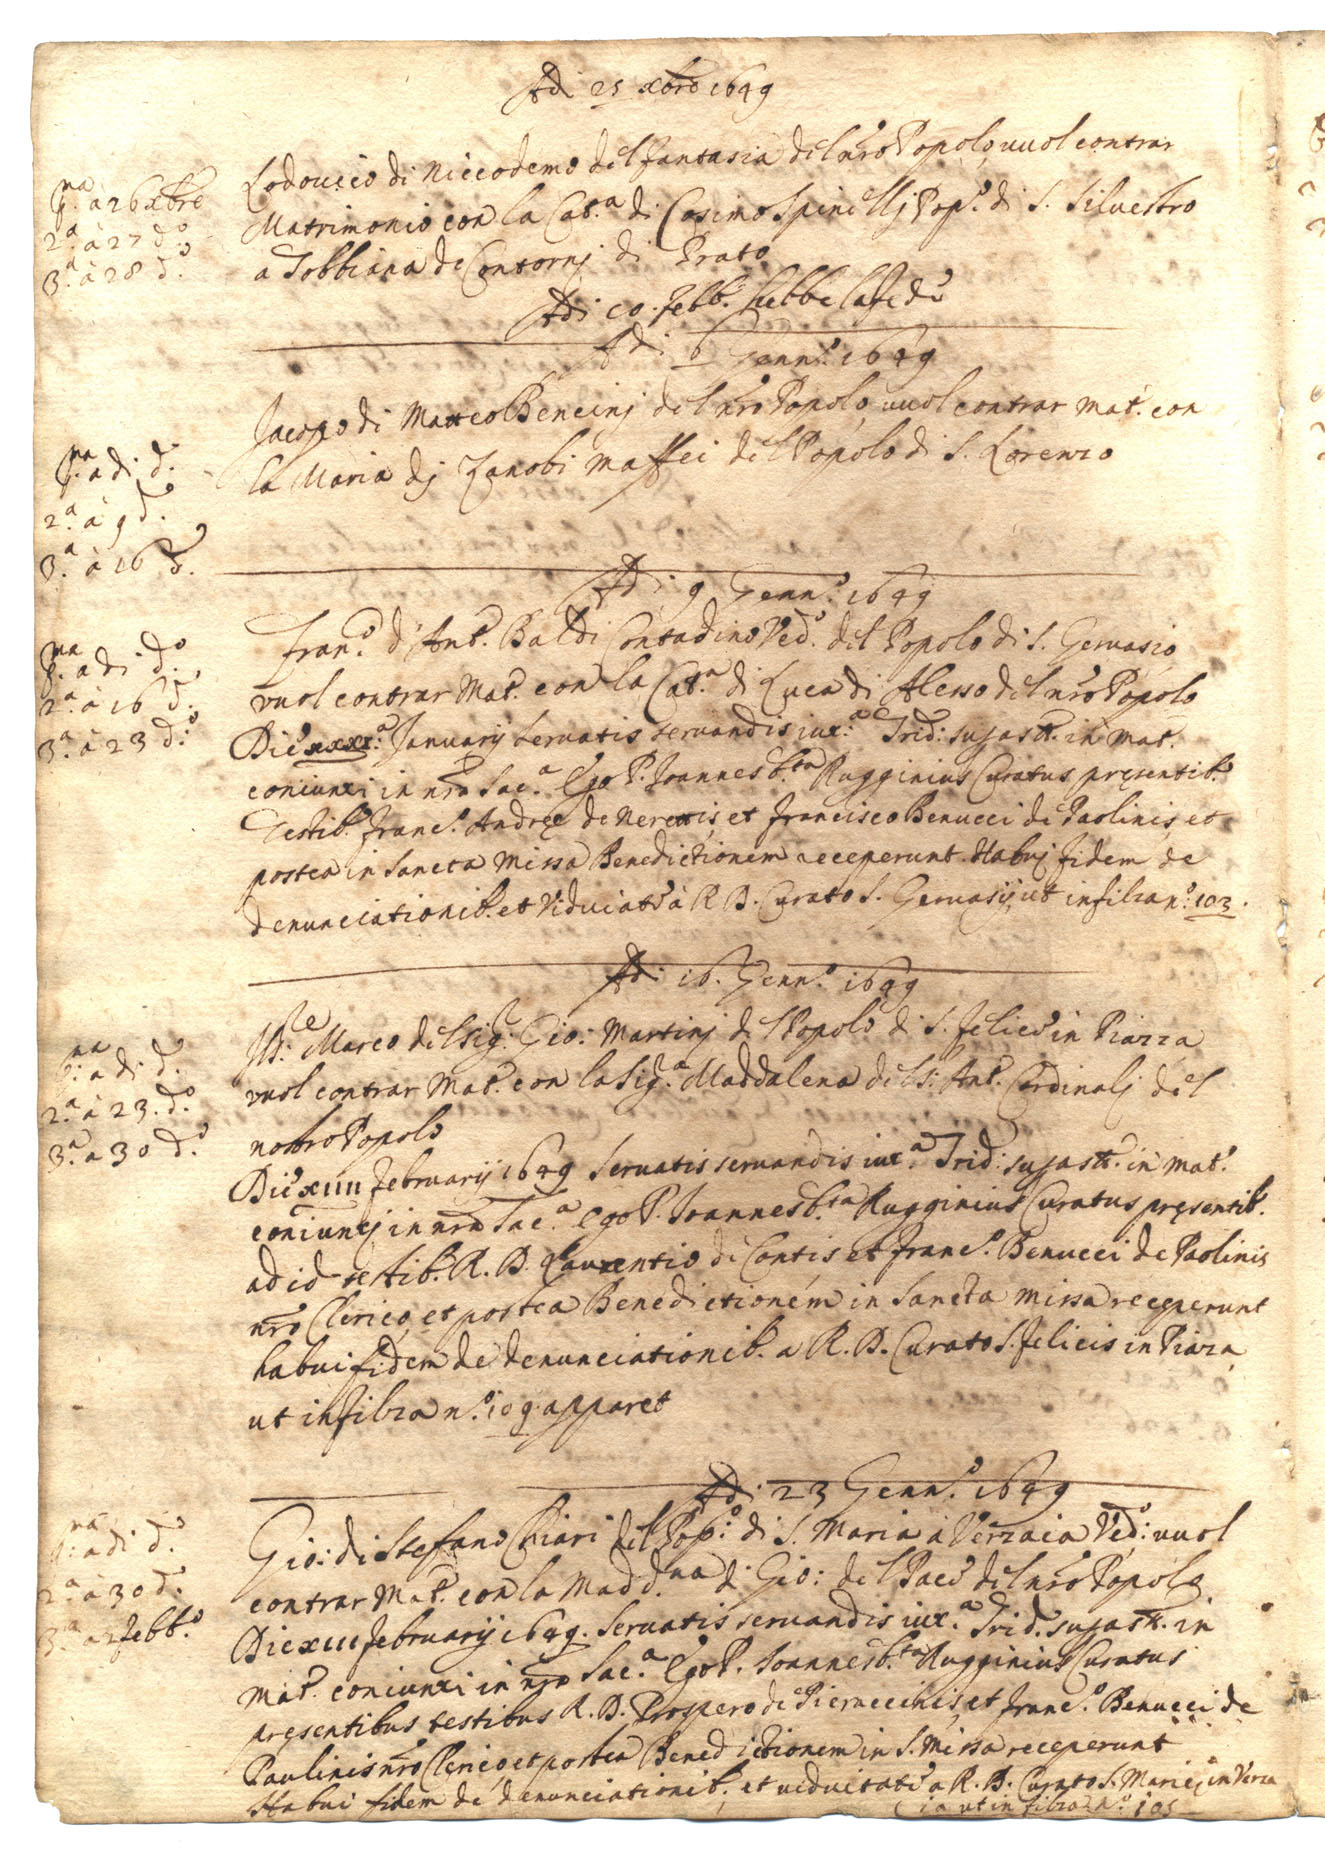 Adi 25 xbre 1649
Lodouico di Niccodemo del fantasia del nro Popolo, uuol contrar
Matrimonio con la Cat.a di Cosimo Spinellj Pop.o di S. Siluestro
a Tobbiana de Contornj di Prato
p.ma à 26 xbre
2.a à 27 d.o
3.a à 28 d.o
Adi 10 febb.o hebbe la fede
Adi 6 Genn.o 1649
Jacopo di Matteo Bencinj del nro Popolo uuol contrar mat.o con
la Maria dj Zanobi Maffei del Popolo di S. Lorenzo
p.ma a di d.o
2.a à 9 d.o
3.a à 16 d.o
Adi 9 Genn.o 1649
Fran.o d'Ant.o Baldi Contadino Ved.o del Popolo di S. Geruasio
vuol contrar Mat.o con la Cat.a di Luca di Alesso del nro Popolo
p.ma a di d.o
2.a à 16 d.o
3.a à 23 d.o
Die xxxi.a Januarij seruatis seruandis iux.a Trid: suj ast. in mat.o
coniunxi in nra Sac.a Ego P. Joannes b.ta Rugginius Curatus pręsentib.
Testib. Franc.o Andreę de Nerettis, et Francisco Benucci de Paolinis, et
postea in Sancta Missa Benedictionem receperunt. Habuj fidem de
denunciationib. et Viduiatu à R. D. Curato S. Geruasij, ut in filza n.o 103.
Adi 16. Genn.o 1649
Ill.re Marco del Sig.r Gio: Martinj del Popolo di S. felice in Piazza
vuol contrar Mat.o con la Sig.a Maddalena del S: Ant.o Cardinalj del
nostro Popolo
p.ma a di d.o
2.a à 23. d.o
3.a a 30 d.o
Die xiiii februarij 1649 Seruatis seruandis iux.a Trid: suj ast. in mat.o
coniunxj in nra Sac.a Ego P. Joannes b.ta Rugginius Curatus pręsentib.
ad id testib. R. D. Laurentio de Contis et Franc.o Benucci de Paolinis
nro Clerico, et postea Benedictionem in Sancta missa receperunt
habui fidem de denunciationib. a R. D. Curato S. felicis in Piaza
ut in filza n.o 109 apparet
Adi 23 Genn.o 1649
Gio: di Stefano Chiari del Pop.o di S. Maria à Verzaia Ved.o uuol
contrar Mat.o con la Madd.na di Gio: del Pace del nro Popolo
p.ma a di d.o
2.a à 30 d.o
3.a a 2 febb.o
Die xiii februarij 1649. Seruatis seruandis iux.a Trid. suj ast. in
Mat.o coniunxi in nra Sac.a Ego P. Joannes b.ta Rugginius Curatus
pręsentibus testibus R. D. Prospero de Pieraccinis, et Franc.o Benucci de
Paulinis nro Clerico, et postea Benedictionem in S. Missa receperunt
Habui fidem de denunciationib. et uiduitatis a R. D. Curato S. Marię in Verza
ia ut in filza n.o 105